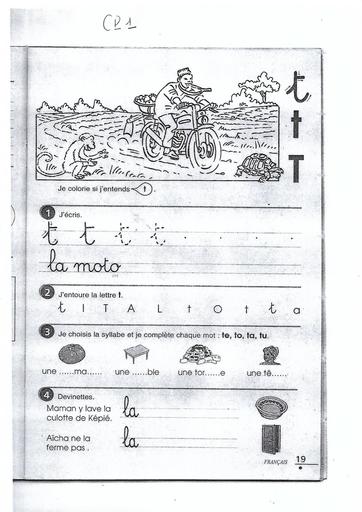 CP1
t
t
T
Je colorie si j'entends t .
1 J'écris.
t t t t
la moto
2 J'entoure la lettre t.
t I T A L t O t t a
3 Je choisis la syllabe et je complète chaque mot : te, to, ta, tu.
une ......ma...... une ......ble une tor......e une tê......
4 Devinettes.
Maman y lave la
culotte de Képié.
la
Aïcha ne la
ferme pas .
la
FRANÇAIS 19